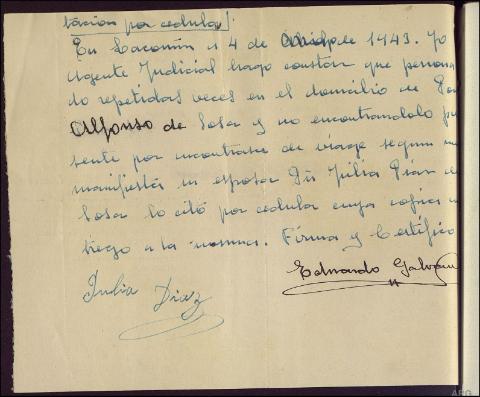 tacion por cedula/.
En Sacomin a 4 de de 1943. Yo
Agente Judicial hago constar que persona
do repetidas veces en el domicilio de Don
Alfonso de Sosa y no encontrandolo pre
sente por encontrarse de viage segun me
manifiesta su esposa Dª Julia Diaz de
Sosa lo citó por cedula cuya copia en
trego a la misma. Firma y Certifico
Eduardo Galvan
Julia Diaz
ARG